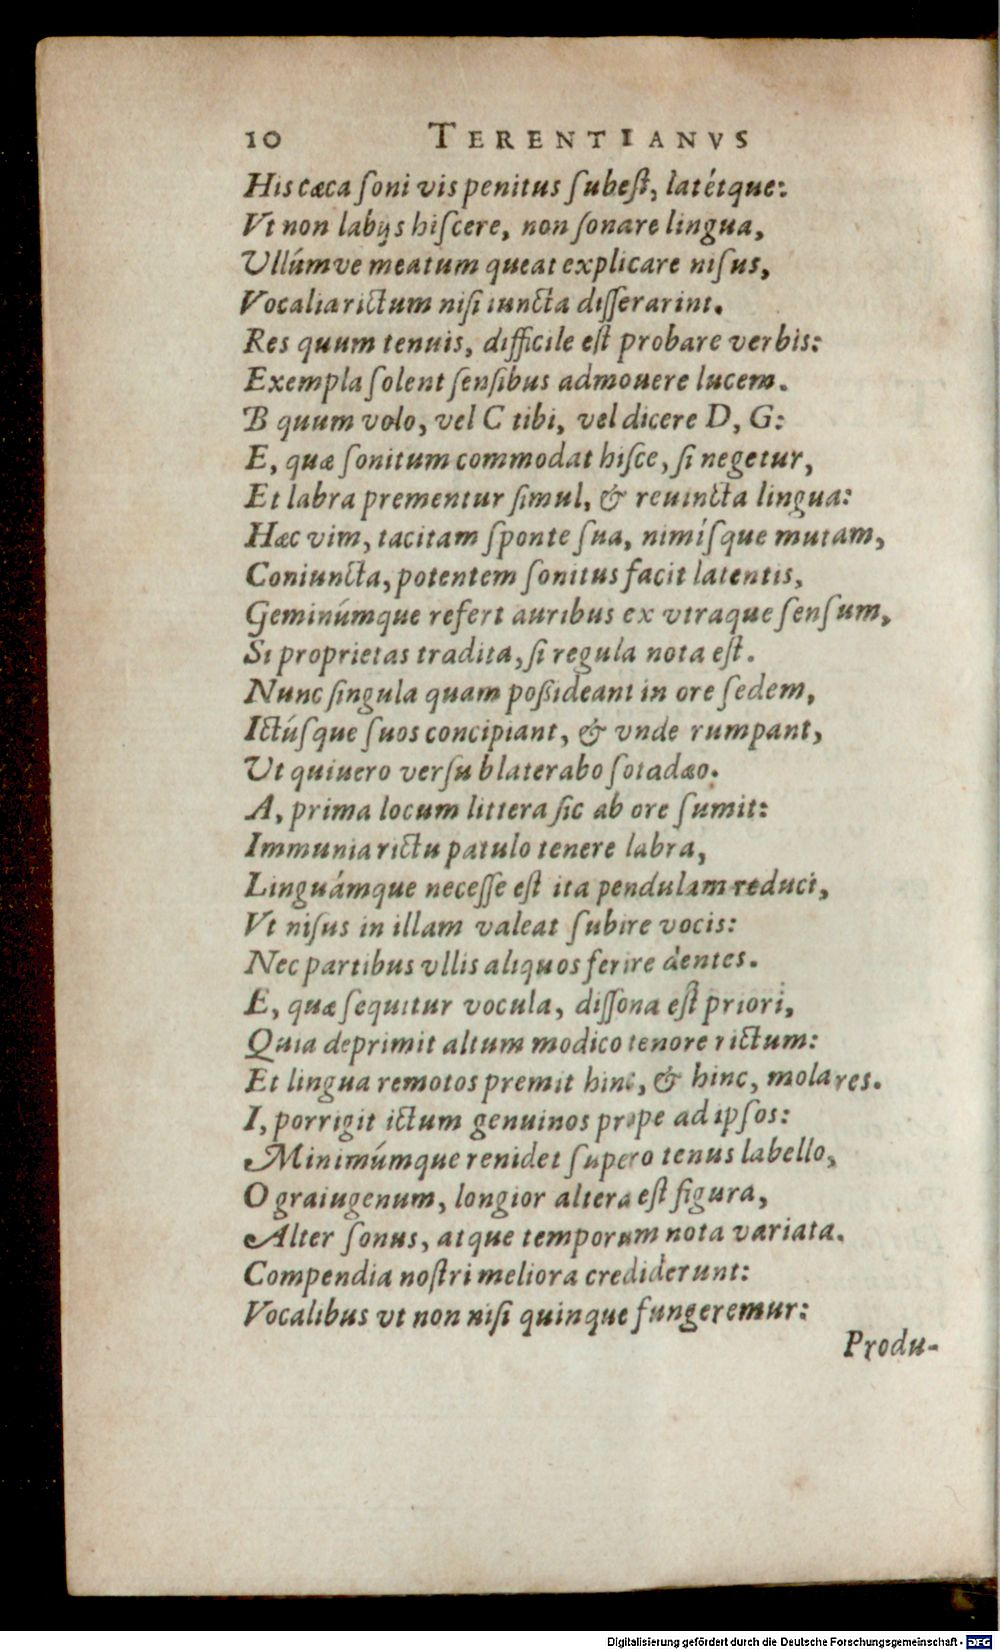 10 TERENTIANVS
His cæca ſoni vis penitus ſubeſt, latétque:
Vt non labijs hiſcere, non ſonare lingua,
Vllúmve meatum queat explicare niſus,
Vocalia rictum niſi iuncta diſſerarint.
Res quum tenuis, difficile eſt probare verbis:
Exempla ſolent ſenſibus admouere lucem.
B quum volo, vel C tibi, vel dicere D, G:
E, quæ ſonitum commodat hiſce, ſi negetur,
Et labra prementur ſimul, & reuincta lingua:
Hæc vim, tacitam ſponte ſua, nimíſque mutam,
Coniuncta, potentem ſonitus facit latentis,
Geminúmque refert auribus ex vtraque ſenſum,
Si proprietas tradita, ſi regula nota eſt.
Nunc ſingula quam poßideant in ore ſedem,
Ictúſque ſuos concipiant, & vnde rumpant,
Vt quiuero verſu blaterabo ſotadæo.
A, prima locum littera ſic ab ore ſumit:
Immunia rictu patulo tenere labra,
Linguámque neceſſe eſt ita pendulam reduci,
Vt niſus in illam valeat ſubire vocis:
Nec partibus vllis aliquos ferire dentes.
E, quæ ſequitur vocula, diſſona eſt priori,
Quia deprimit altum modico tenore rictum:
Et lingua remotos premit hinc, & hinc, molares.
I, porrigit ictum genuinos prope ad ipſos:
Minimúmque renidet ſupero tenus labello,
O graiugenum, longior altera eſt figura,
Alter ſonus, atque temporum nota variata.
Compendia noſtri meliora crediderunt:
Vocalibus vt non niſi quinque fungeremur:
Produ-
Digitalisierung gefördert durch die Deutsche Forschungsgemeinschaft - DFG